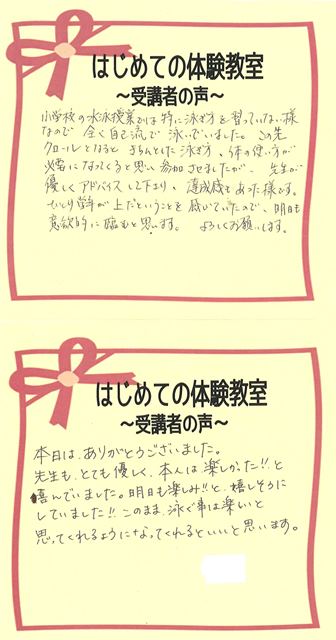 はじめての体験教室
～受講者の声～
小学校の水泳授業では特に泳ぎ方を習っていない様
なので全く自己流で泳いでいました。この先
クロールとなると きちんとした泳ぎ方、体の使い方が
必要になってくると思い参加させましたが、先生が
優しくアドバイスして下さり、達成感もあった様です。
ひとり学年が上だということを感じていたので、明日も
意欲的に臨むと思います。 よろしくお願いします。
はじめての体験教室
～受講者の声～
本日は、ありがとうございました。
先生も、とても優しく、本人は楽しかった!!と
喜んでいました。明日も楽しみ!!と、嬉しそうに
していました!! このまま、泳ぐ事は楽しいと
思ってくれるようになってくれるといいと思います。